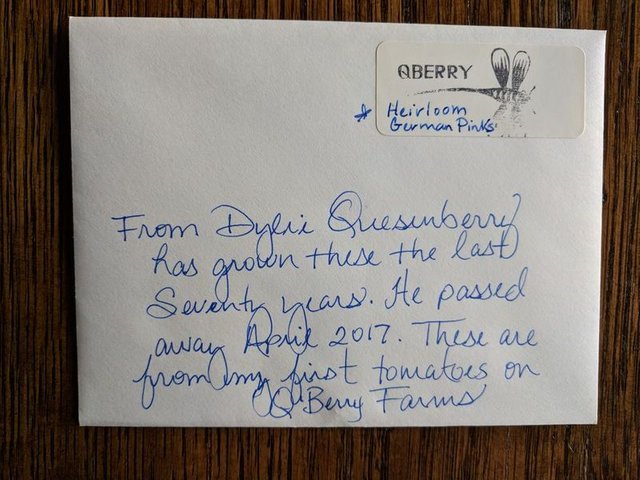 QBERRY
* Heirloom
German Pinks
From Dylie Quesenberry
has grown these the last
Seventy years. He passed
away April 2017. These are
from my first tomatoes on
Q'Berry Farms